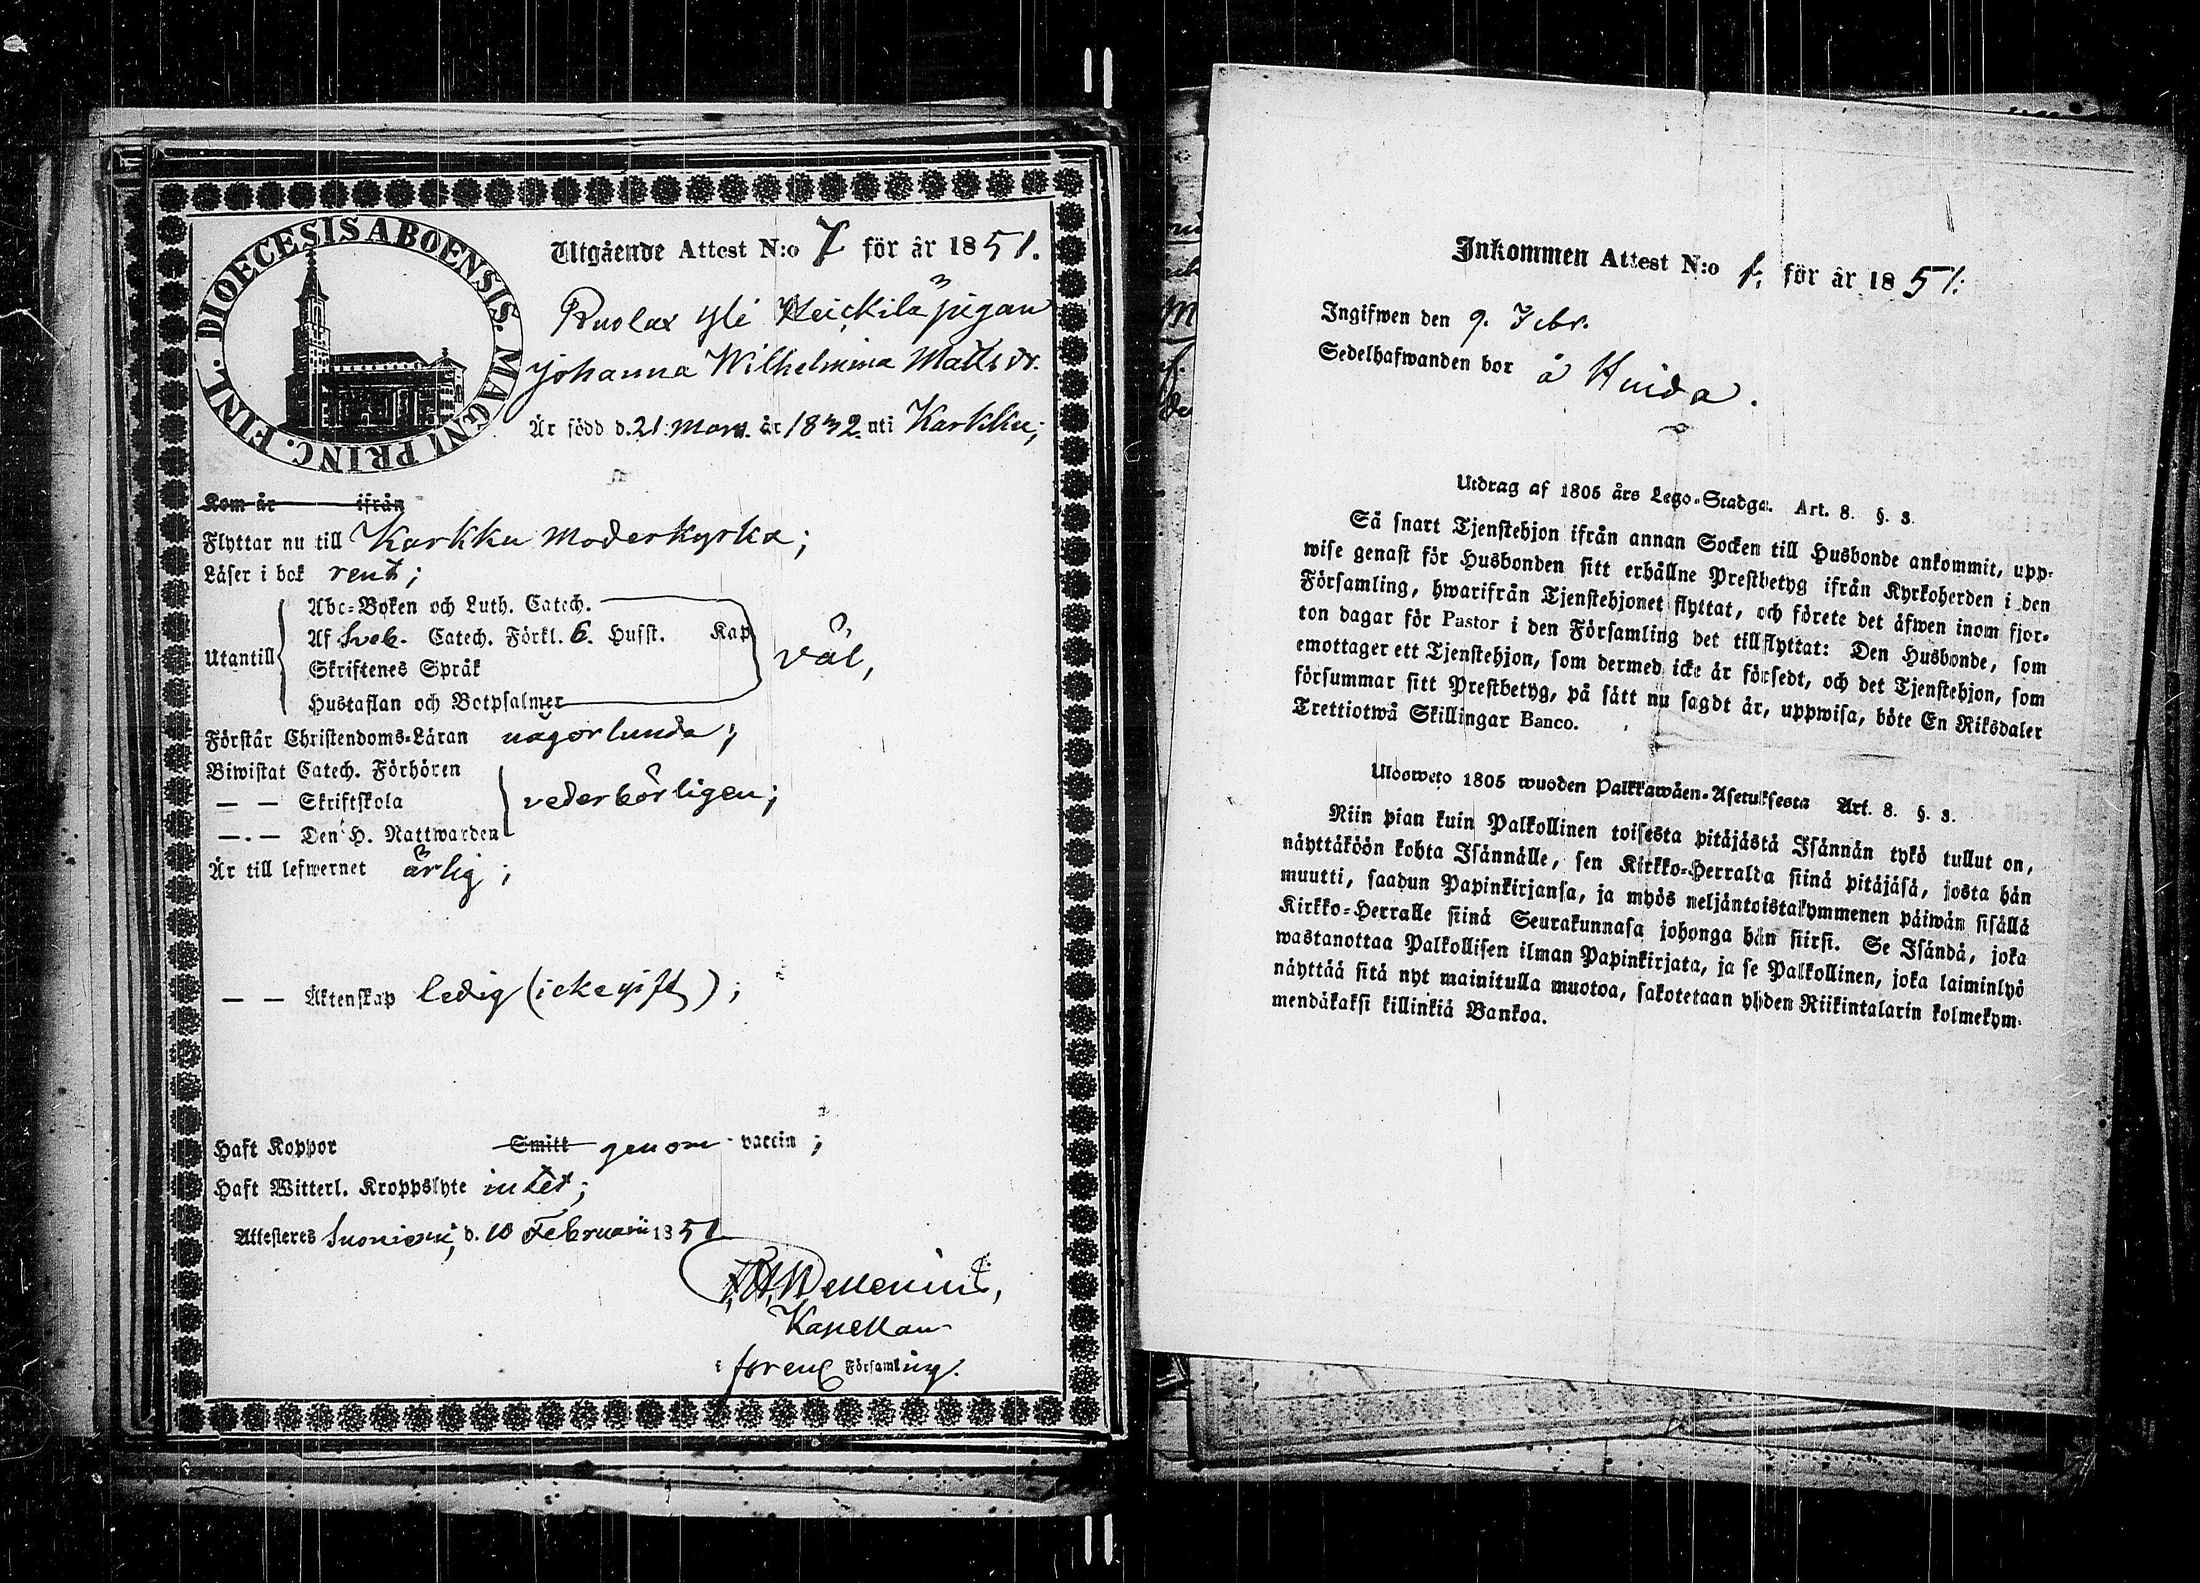 DIOECESIS ABOENSIS. MAGNI PRINC. FINL.
Utgående Attest N:o 7 för år 1851.
Ruolax Yli Heickilä pigan
Johanna Wilhelmina Mattsdr.
Är född d. 21 Mars. år 1832 uti Karkku;
Kom år ifrån
Flyttar nu till Karkku Moderkyrka;
Läser i bok rent;
Utantill
Abc-Boken och Luth. Catech.
Af Sveb. Catech. Förkl. 6. Hufst. Kap
Skriftenes Språk
Hustaflan och Botpsalmer
väl,
Förstår Christendoms-Läran någorlunda;
Biwistat Catech. Förhören
— — Skriftskola
— — Den H. Nattwarden
vederbörligen;
Är till lefwernet ärlig;
— — Äktenskap ledig (icke gift);
Haft Koppor Smitt genom vaccin;
Haft Witterl. Kroppslyte intet;
Attesteres Suoniemi, d. 10 Februarii 1851
Kapellan
i förenämnd Församling.
Inkommen Attest N:o 1. för år 1851.
Ingifwen den 9. Febr.
Sedelhafwanden bor å Huida.
Utdrag af 1805 års Lego-Stadga. Art. 8. §. 3.
Så snart Tjenstehjon ifrån annan Socken till Husbonde ankommit, upp-
wise genast för Husbonden sitt erhållne Prestbetyg ifrån Kyrkoherden i den
Församling, hwarifrån Tjenstehjonet flyttat, och förete det äfwen inom fjor-
ton dagar för Pastor i den Församling det tillflyttat: Den Husbonde, som
emottager ett Tjenstehjon, som dermed icke är försedt, och det Tjenstehjon, som
försummar sitt Prestbetyg, på sätt nu sagdt är, uppwisa, böte En Riksdaler
Trettiotwå Skillingar Banco.
Ulosweto 1805 wuoden Palkkawäen-Asetuksesta Art. 8. §. 3.
Niin pian kuin Palkollinen toisesta pitäjästä Isännän tykö tullut on,
näyttäköön kohta Isännälle, sen Kirkko-Herralda siinä pitäjäsä, josta hän
muutti, saadun Papinkirjansa, ja myös neljäntoistakymmenen päiwän sisällä
Kirkko-Herralle siinä Seurakunnasa johonga hän siirsi. Se Isändä, joka
wastanottaa Palkollisen ilman Papinkirjata, ja se Palkollinen, joka laiminlyö
näyttää sitä nyt mainitulla muotoa, sakotetaan yhden Riikintalarin kolmekym-
mendäkaksi killinkiä Bankoa.